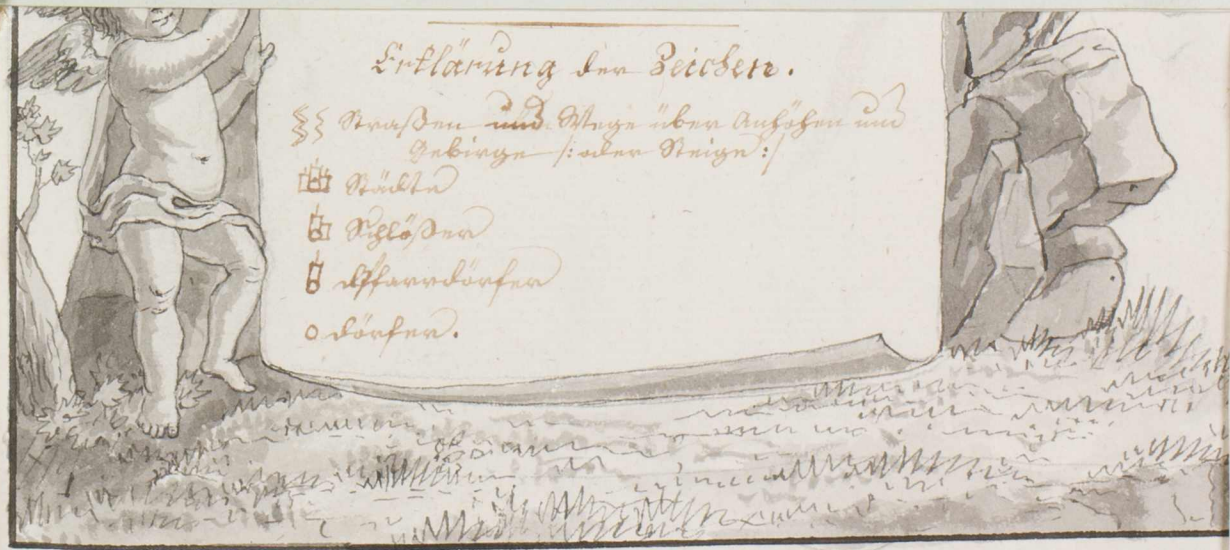 Erklärung der Zeichen.
Straßen und Wege über Anhöhen und
Gebirge /: oder Steige :/
Städte
Schlößer
Pfarrdörfer
Dörfer.